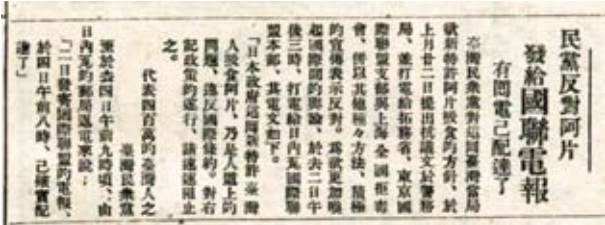 民黨反對阿片
發給國聯電報
有囘電已配達了
臺灣民衆黨對這囘臺灣當局
欲新特許阿片吸食的方針、於
上月廿二日提出抗議文於警務
局、並打電給拓務省、東京國
際聯盟支部與上海全國拒毒
會、併以其他種々方法、積極
的宣傳表示反對。爲欲更加喚
起國際間的輿論、於去二日午
後三時、打電給日內瓦國際聯
盟本部、其電文如下。
「日本政府這囘欲特許臺灣
人吸食阿片、乃是人道上的
問題、違反國際條約。對右
記政策的遂行、請速速阻止
之。
代表四百萬的臺灣人之
臺灣民衆黨
至於去四日午前九時頃、由
日內瓦的郵局返電來說；
「二日發寄國際聯盟的電報、
於四日午前八時、已確實配
達了」